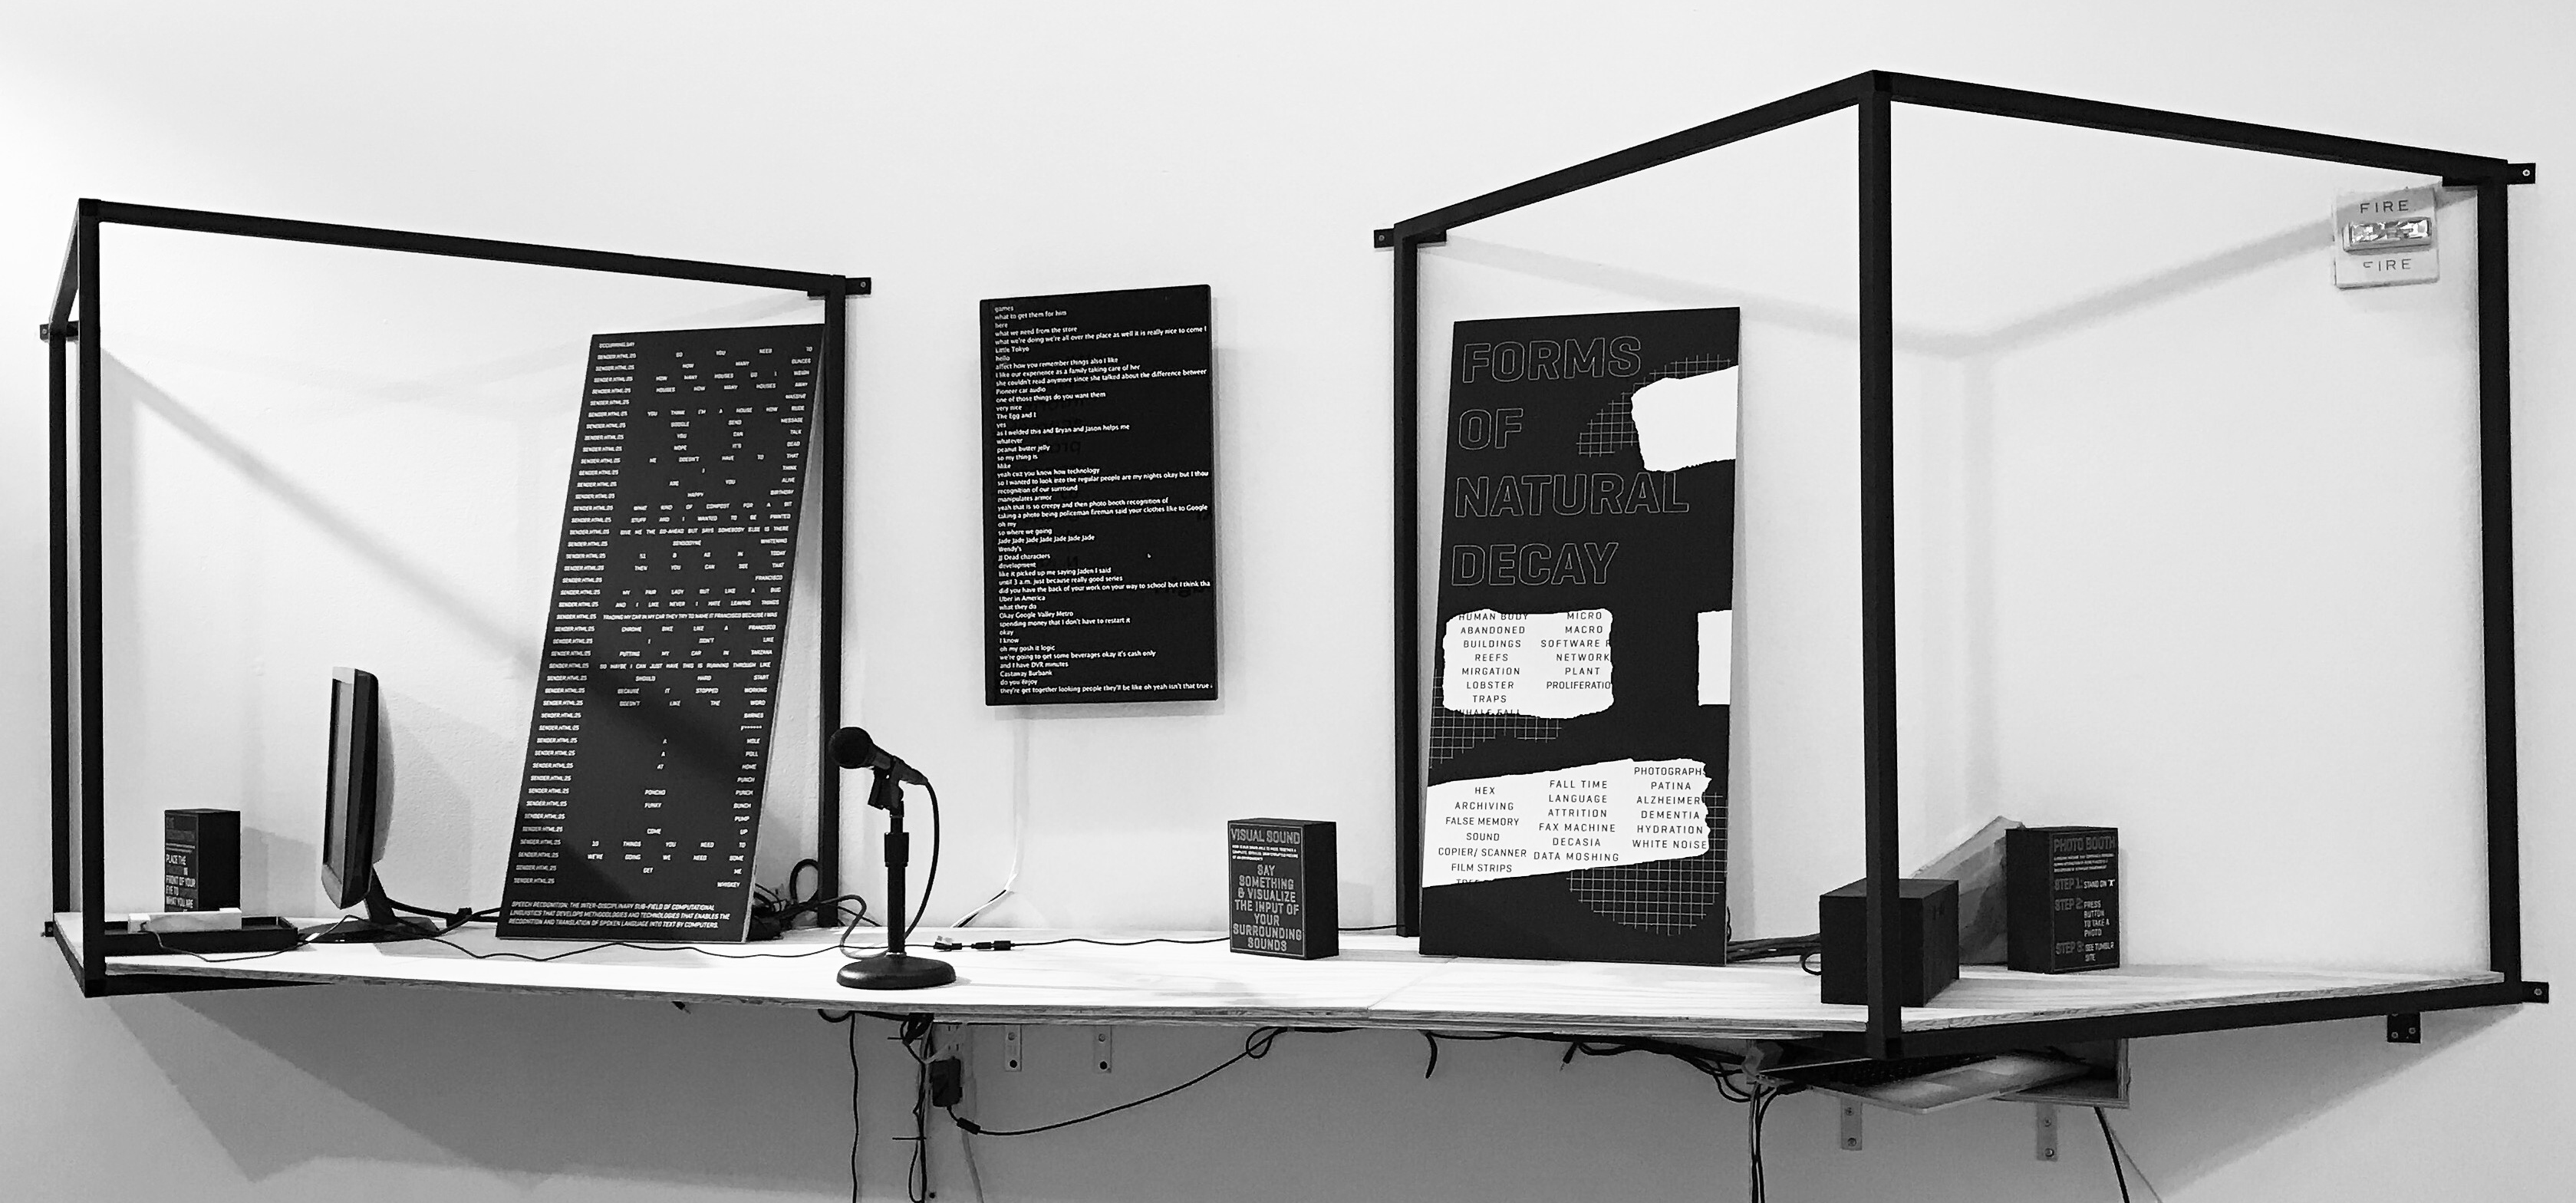 PLACE THE
IN
FRONT OF YOUR
EYE TO
WHAT YOU ARE
OCCURRING.SAY
SENDER.HTML:25 SO YOU NEED TO
SENDER.HTML:25 HOW MANY OUNCES
SENDER.HTML:25 HOW MANY HOUSES DO I WEIGH
SENDER.HTML:25 HOUSES HOW MANY HOUSES AWAY
SENDER.HTML:25 MASSIVE
SENDER.HTML:25 YOU THINK I'M A HOUSE NOW RUDE
SENDER.HTML:25 GOOGLE SEND MESSAGE
SENDER.HTML:25 YOU CAN TALK
SENDER.HTML:25 NOPE IT'S DEAD
SENDER.HTML:25 HE DOESN'T HAVE TO THAT
SENDER.HTML:25 I THINK
SENDER.HTML:25 ARE YOU ALIVE
SENDER.HTML:25 HAPPY BIRTHDAY
SENDER.HTML:25 WHAT KIND OF COMPOST FOR A BIT
SENDER.HTML:25 STUFF AND I WANTED TO BE PAINTED
SENDER.HTML:25 GIVE ME THE GO-AHEAD BUT SAYS SOMEBODY ELSE IS THERE
SENDER.HTML:25 SENSODYNE WHITENING
SENDER.HTML:25 51 B AS IN TODAY
SENDER.HTML:25 THEN YOU CAN SEE THAT
SENDER.HTML:25 FRANCISCO
SENDER.HTML:25 MY FAIR LADY BUT LIKE A BUG
SENDER.HTML:25 AND I LIKE NEVER I HATE LEAVING THINGS
SENDER.HTML:25 TRADING MY CAR IN MY CAR THEY TRY TO NAME IT FRANCISCO BECAUSE I WAS
SENDER.HTML:25 CHROME BIKE LIKE A FRANCISCO
SENDER.HTML:25 I DON'T LIKE
SENDER.HTML:25 PUTTING MY CAR IN TARZANA
SENDER.HTML:25 SO MAYBE I CAN JUST HAVE THIS IS RUNNING THROUGH LIKE
SENDER.HTML:25 SHOULD HARD START
SENDER.HTML:25 BECAUSE IT STOPPED WORKING
SENDER.HTML:25 DOESN'T LIKE THE WORD
SENDER.HTML:25 BARNES
SENDER.HTML:25 F******
SENDER.HTML:25 A HOLE
SENDER.HTML:25 A POLL
SENDER.HTML:25 AT HOME
SENDER.HTML:25 PUNCH
SENDER.HTML:25 PONCHO PUNCH
SENDER.HTML:25 FUNKY BUNCH
SENDER.HTML:25 PUMP
SENDER.HTML:25 COME UP
SENDER.HTML:25 10 THINGS YOU NEED TO
SENDER.HTML:25 WE'RE GOING WE NEED SOME
SENDER.HTML:25 GET ME
SENDER.HTML:25 WHISKEY
SPEECH RECOGNITION: THE INTER-DISCIPLINARY SUB-FIELD OF COMPUTATIONAL
LINGUISTICS THAT DEVELOPS METHODOLOGIES AND TECHNOLOGIES THAT ENABLES THE
RECOGNITION AND TRANSLATION OF SPOKEN LANGUAGE INTO TEXT BY COMPUTERS.
games
what to get them for him
here
what we need from the store
what we're doing we're all over the place as well it is really nice to come t
Little Tokyo
hello
affect how you remember things also I like
I like our experience as a family taking care of her
she couldn't read anymore since she talked about the difference between
Pioneer car audio
one of those things do you want them
very nice
The Egg and I
yes
as I welded this and Bryan and Jason helps me
whatever
peanut butter jelly
so my thing is
Mike
yeah cuz you know how technology
so I wanted to look into the regular people are my nights okay but I thou
recognition of our surround
manipulates armor
yeah that is so creepy and then photo booth recognition of
taking a photo being policeman fireman said your clothes like to Google
oh my
so where we going
Jade Jade Jade Jade Jade Jade Jade
Wendy's
JJ Dead characters
development
like it picked up me saying Jaden I said
until 3 a.m. just because really good series
did you have the back of your work on your way to school but I think tha
Uber in America
what they do
Okay Google Valley Metro
spending money that I don't have to restart it
okay
I know
oh my gosh it logic
we're going to get some beverages okay it's cash only
and I have DVR minutes
Castaway Burbank
do you enjoy
they're get together looking people they'll be like oh yeah isn't that true
VISUAL SOUND
SAY
SOMETHING
& VISUALIZE
THE INPUT OF
YOUR
SURROUNDING
SOUNDS
FORMS
OF
NATURAL
DECAY
HUMAN BODY
ABANDONED
BUILDINGS
REEFS
MIRGATION
LOBSTER
TRAPS
WHALE FALL
MICRO
MACRO
SOFTWARE R
NETWORK
PLANT
PROLIFERATIO
HEX
ARCHIVING
FALSE MEMORY
SOUND
COPIER/ SCANNER
FILM STRIPS
FALL TIME
LANGUAGE
ATTRITION
FAX MACHINE
DECASIA
DATA MOSHING
PHOTOGRAPHS
PATINA
ALZHEIMER
DEMENTIA
HYDRATION
WHITE NOISE
PHOTO BOOTH
STEP 1: STAND ON 'X'
STEP 2: PRESS
BUTTON
TO TAKE A
PHOTO
STEP 3: SEE TUMBLR
SITE
FIRE
FIRE